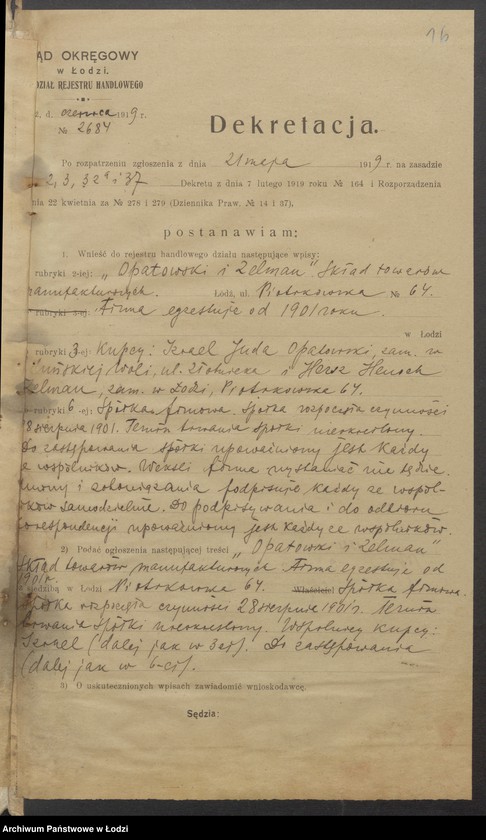 16
ĄD OKRĘGOWY
w Łodzi.
DZIAŁ REJESTRU HANDLOWEGO
d. czerwca 1919 r.
№ 2684
Dekretacja.
Po rozpatrzeniu zgłoszenia z dnia 21 maja 1919 r. na zasadzie
2, 3, 32 i 37 Dekretu z dnia 7 lutego 1919 roku № 164 i Rozporządzenia
nia 22 kwietnia za № 278 i 279 (Dziennika Praw. № 14 i 37),
postanawiam:
1. Wnieść do rejestru handlowego działu następujące wpisy:
rubryki 2-iej: „Opatowski i Zelman" Skład towarów
manufakturowych. Łódź, ul. Piotrkowska № 64.
rubryki 3-ej: Firma egzestuje od 1901 roku.
w Łodzi
rubryki 3-ej: Kupcy: Izrael Juda Opatowski, zam. w
Woli, ul. i Hersz Henoch
Zelman, zam. w Łodzi, Piotrkowska 64.
rubryki 6-ej: Spółka firmowa. Spółka rozpoczęła czynności
8 sierpnia 1901. Termin trwania spółki nieokreślony.
Do zastępowania spółki upoważniony jest każdy
z wspólników. Weksli firma wystawiać nie będzie.
umowy i zobowiązania podpisuje każdy ze wspól-
ników samodzielnie. Do podpisywania i do odbioru
korespondencji upoważniony jest każdy ze wspólników.
2) Podać ogłoszenia następującej treści „Opatowski i Zelman"
Skład towarów manufakturowych Firma egzestuje od
1901 r.
siedzibą w Łodzi Piotrkowska 64. Właściciel Spółka firmowa.
Spółka rozpoczęła czynności 28 sierpnia 1901 r. Termin
trwania Spółki nieokreślony. Wspólnicy kupcy:
Izrael (dalej jak w 3ej). Do zastępowania
(dalej jak w 6-ej).
3) O uskutecznionych wpisach zawiadomić wnioskodawcę.
Sędzia:
Archiwum Państwowe w Łodzi